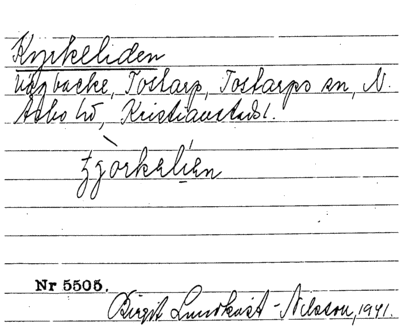 Kyrkeliden
Vägbacke, Tostarp, Tostarps sn, N.
Åsbo hd, Kristianstads l.
Nr 5505.
Birgit Lundkvist-Nilsson, 1941.